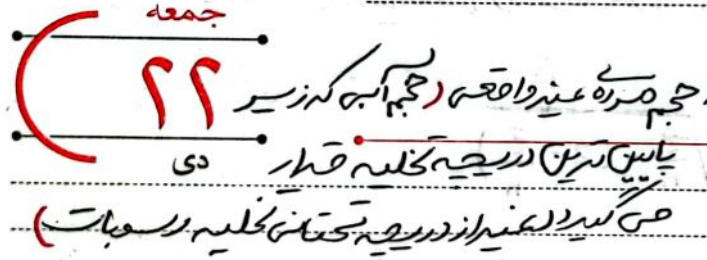 جمعه
۲۲
دی
حجم مرده غیر واقعی (حجم آبی که زیر
پایین ترین دریچه تخلیه قرار
می گیرد (غیر از دریچه تحتانی تخلیه رسوبات)